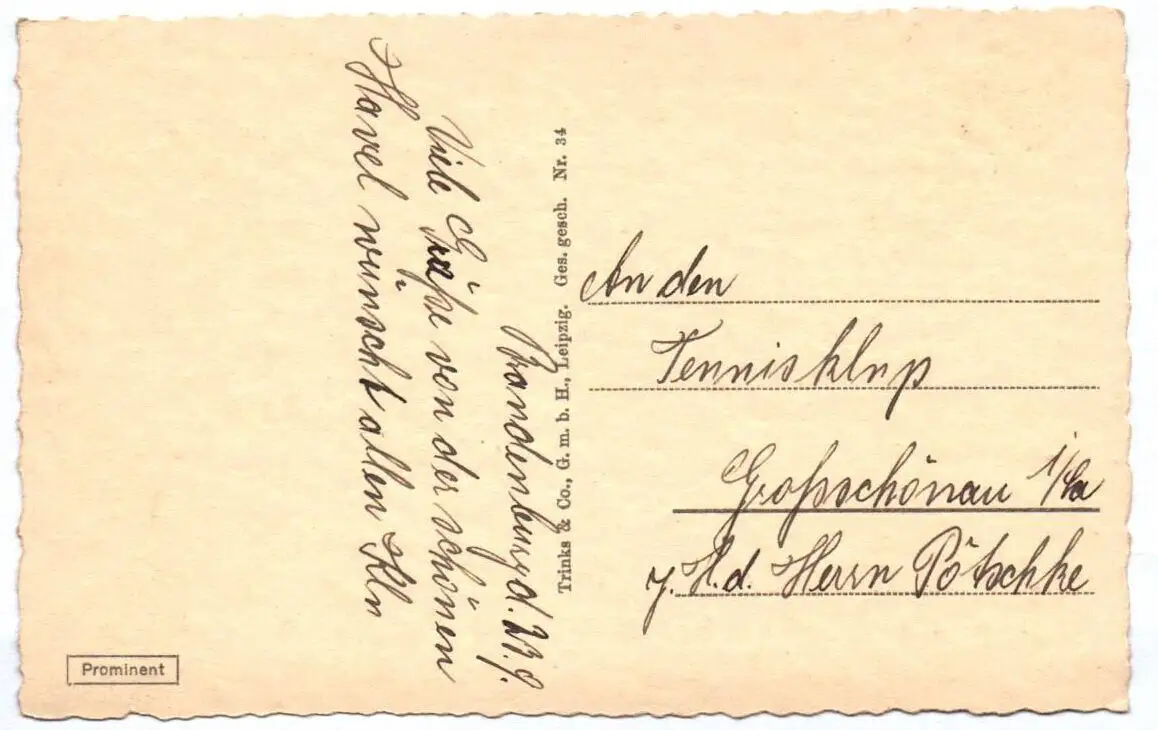 Brandenburg d. 21.9.
Viele Grüße von der schönen
Havel wünscht allen
Trinks & Co., G. m. b. H., Leipzig. Ges. gesch. Nr. 34
An den
Tennisklup
Großschönau i/Sa
z. H. d. Herrn Pötschke
Prominent